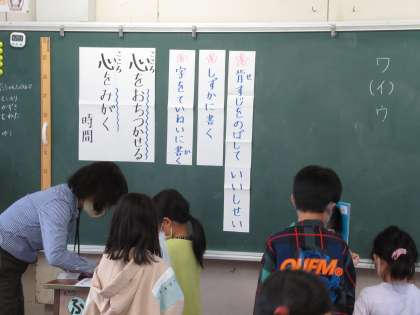 ワ
(イ)
ウ
背すじをのばして いいしせい
せ
しずかに書く
字をていねいに書く
か
心をおちつかせる
こころ
心をみがく
こころ
時間
ふ